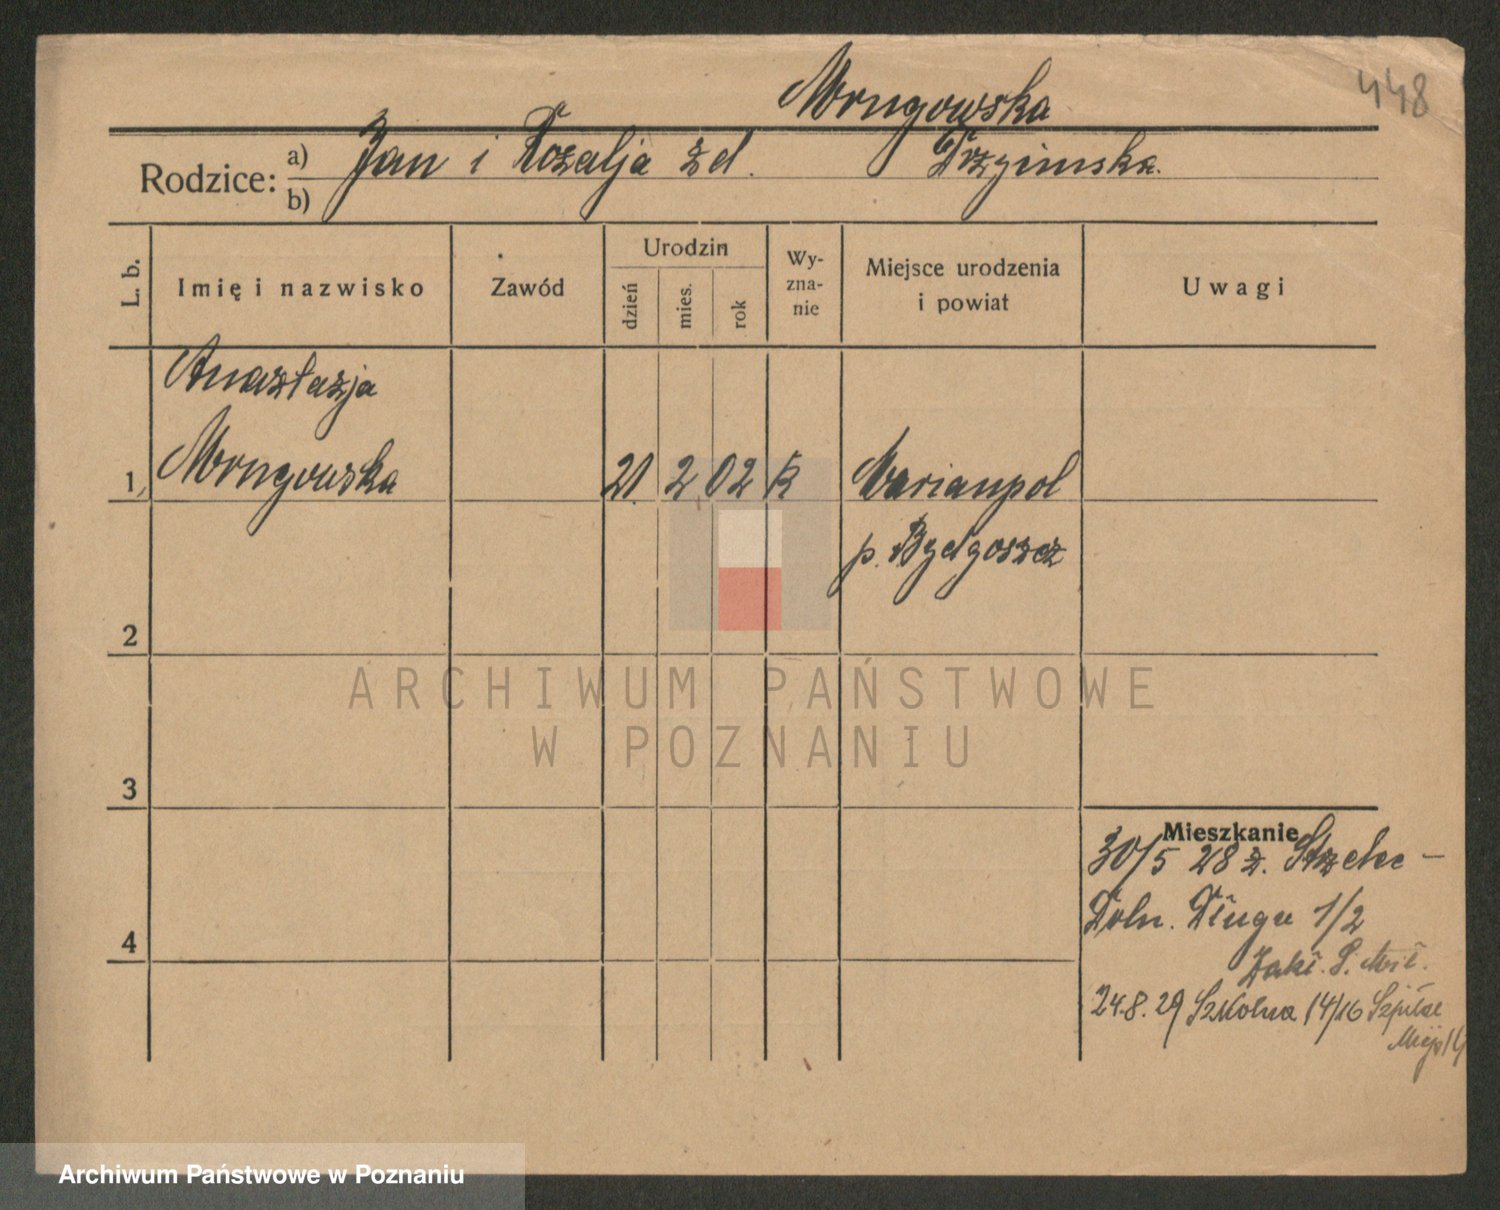 448
Mrugowska
Rodzice: a) Jan i Rozalja z d. Drzyimska.
b)
L. b.
Imię i nazwisko
Zawód
Urodzin
dzień
mies.
rok
Wy-
zna-
nie
Miejsce urodzenia
i powiat
Uwagi
Anastazja
1, Mrugowska 21 2 02 R Marianpol
p. Bydgoszcz
2
3
4
Mieszkanie
30/5 28 z. Strzelec-
Doln. Długa 1/2
Zakł. S. Mił.
24.8.29 Szkolna 14/16 Szpital
Miejs
ARCHIWUM PAŃSTWOWE
W POZNANIU
Archiwum Państwowe w Poznaniu